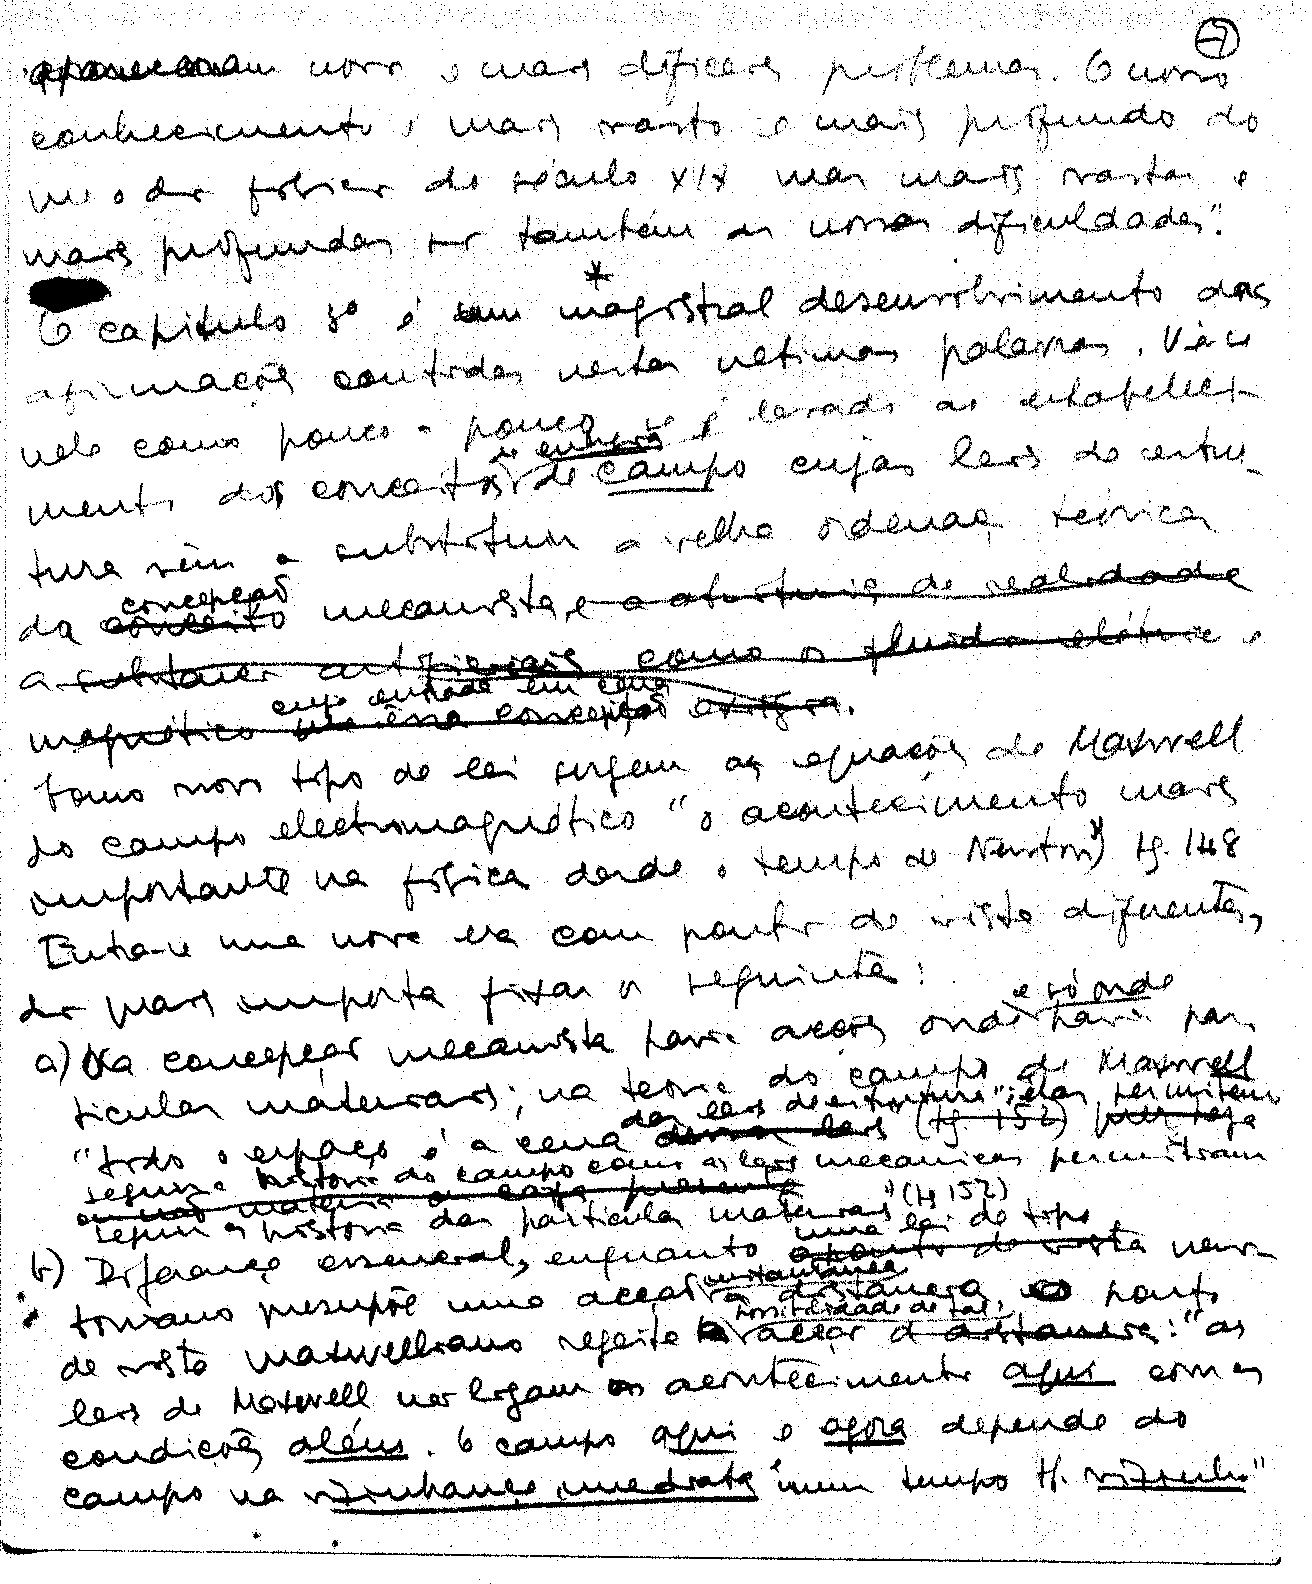 7
novos e mais difíceis problemas. O nosso
conhecimento é mais vasto e mais profundo do
que o da física do século XIX mas mais vastas e
mais profundas são também as nossas dificuldades".
*
O capítulo 3º é um magistral desenvolvimento das
afirmações contidas nestas últimas palavras. Vê-se
nele como pouco a pouco se é levado ao estabeleci-
mento dos conceitos de campo cujas leis de estru-
tura vêm a substituir a velha ordenação teórica
da concepção mecanista,
cuja entrada em cena
Como novo tipo de lei surgem as equações de Maxwell
do campo electromagnético "o acontecimento mais
importante na física desde o tempo de Newton" pg. 148
Entra-se numa nova era com pontos de vista diferentes,
dos quais importa fixar os seguintes:
a) Na concepção mecanista havia acções onde e só onde havia par-
tículas materiais; na teoria do campo de Maxwell
"todo o espaço é a cena das leis de estrutura"; elas permitem
seguir a história do campo como as leis mecânicas permitiram
seguir a história das partículas materiais" (pg 152)
b) Diferença essencial, enquanto uma lei de tipo new-
toniano presupõe uma acção instantânea a distância, o ponto
de vista maxwelliano rejeita a possibilidade de tal acção: "as
leis de Maxwell não ligam os acontecimentos aqui com as
condições além. O campo aqui e agora depende do
campo na vizinhança imediata num tempo pf. vizinho"